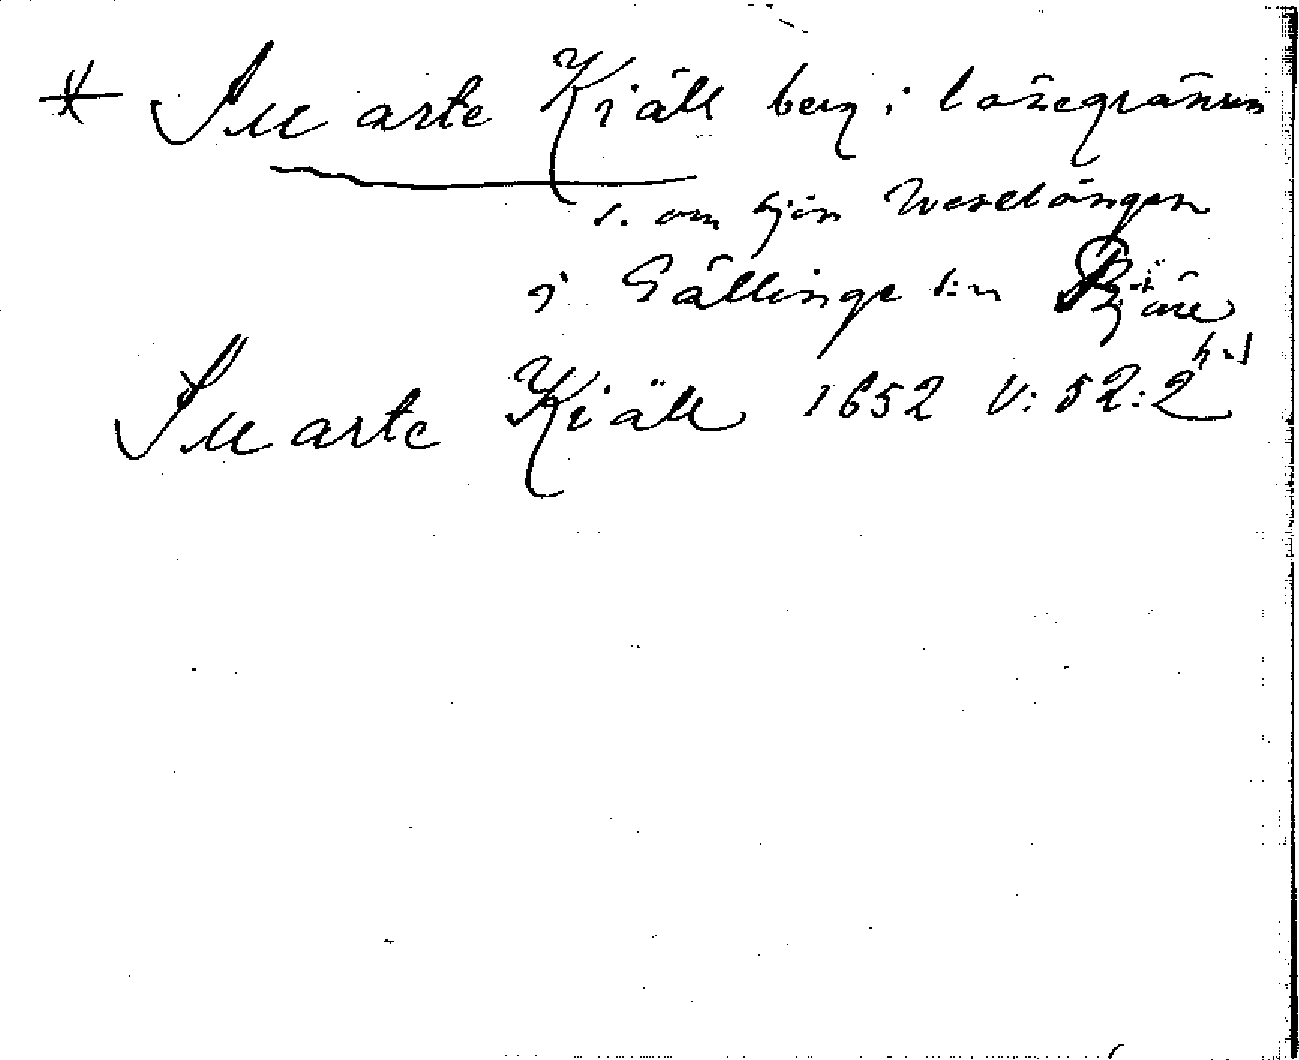 * Suarte Kiäll berg i lanegränsen
s. om sjön Weselången
i Gällinge s:n Fjäre
hd
Suarte Kiäll 1652 V:52:2